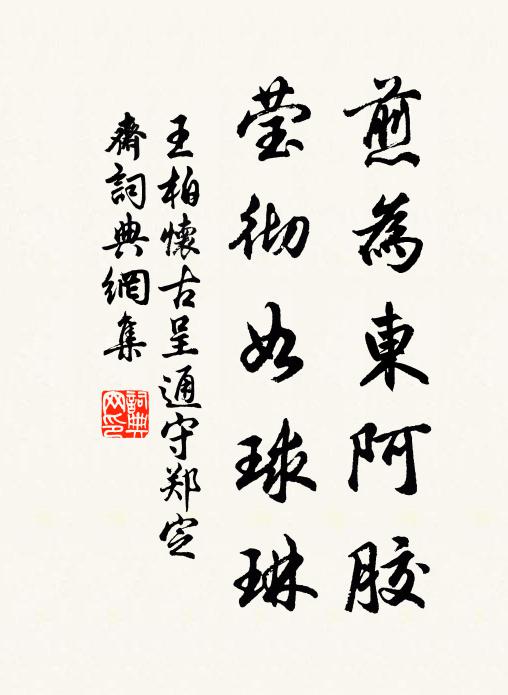 煎為東阿膠
莹彻如球琳
王柏懷古呈通守郑定
齋詞典網集
詞典网印